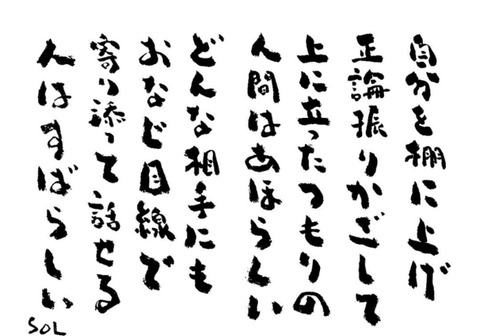 自分を棚に上げ
正論振りかざして
上に立ったつもりの
人間はあほらしい
どんな相手にも
おなじ目線で
寄り添って話せる
人はすばらしい
SOL